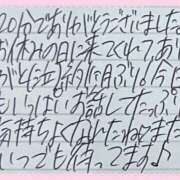 20分でありがとうございました
お休みの日に来てくれてあり
がと(泣)約1ヶ月ぶり。今日
もいっぱいお話してたっぷり
気持ちよくなれたねまた
いつでも待ってます♪